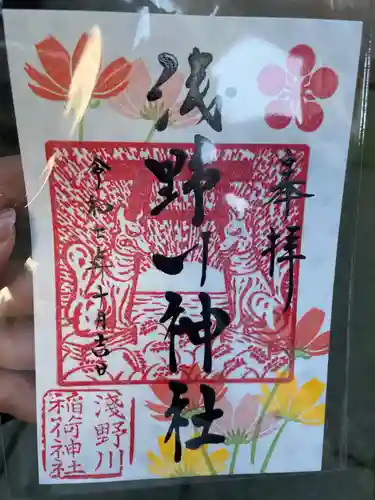 奉拝
浅野川神社
令和七年十月吉日
淺野川
稲荷神社